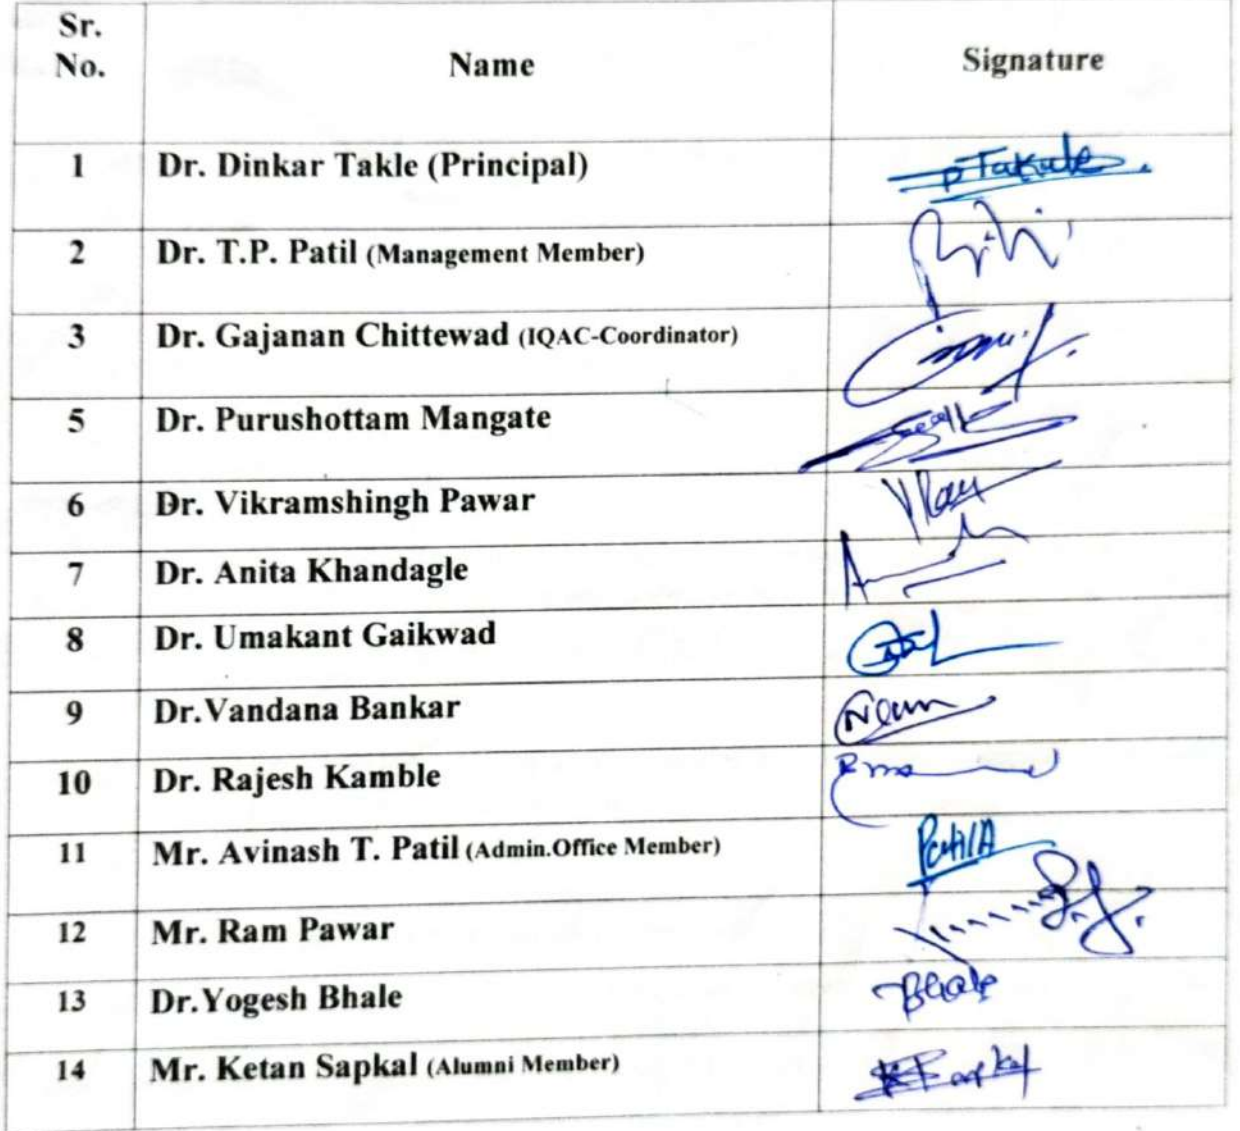 Sr.
No.
Name
Signature
1 Dr. Dinkar Takle (Principal)
2 Dr. T.P. Patil (Management Member)
3 Dr. Gajanan Chittewad (IQAC-Coordinator)
5 Dr. Purushottam Mangate
6 Dr. Vikramshingh Pawar
7 Dr. Anita Khandagle
8 Dr. Umakant Gaikwad
9 Dr.Vandana Bankar
10 Dr. Rajesh Kamble
11 Mr. Avinash T. Patil (Admin.Office Member) Patil A
12 Mr. Ram Pawar
13 Dr.Yogesh Bhale Bhale
14 Mr. Ketan Sapkal (Alumni Member)